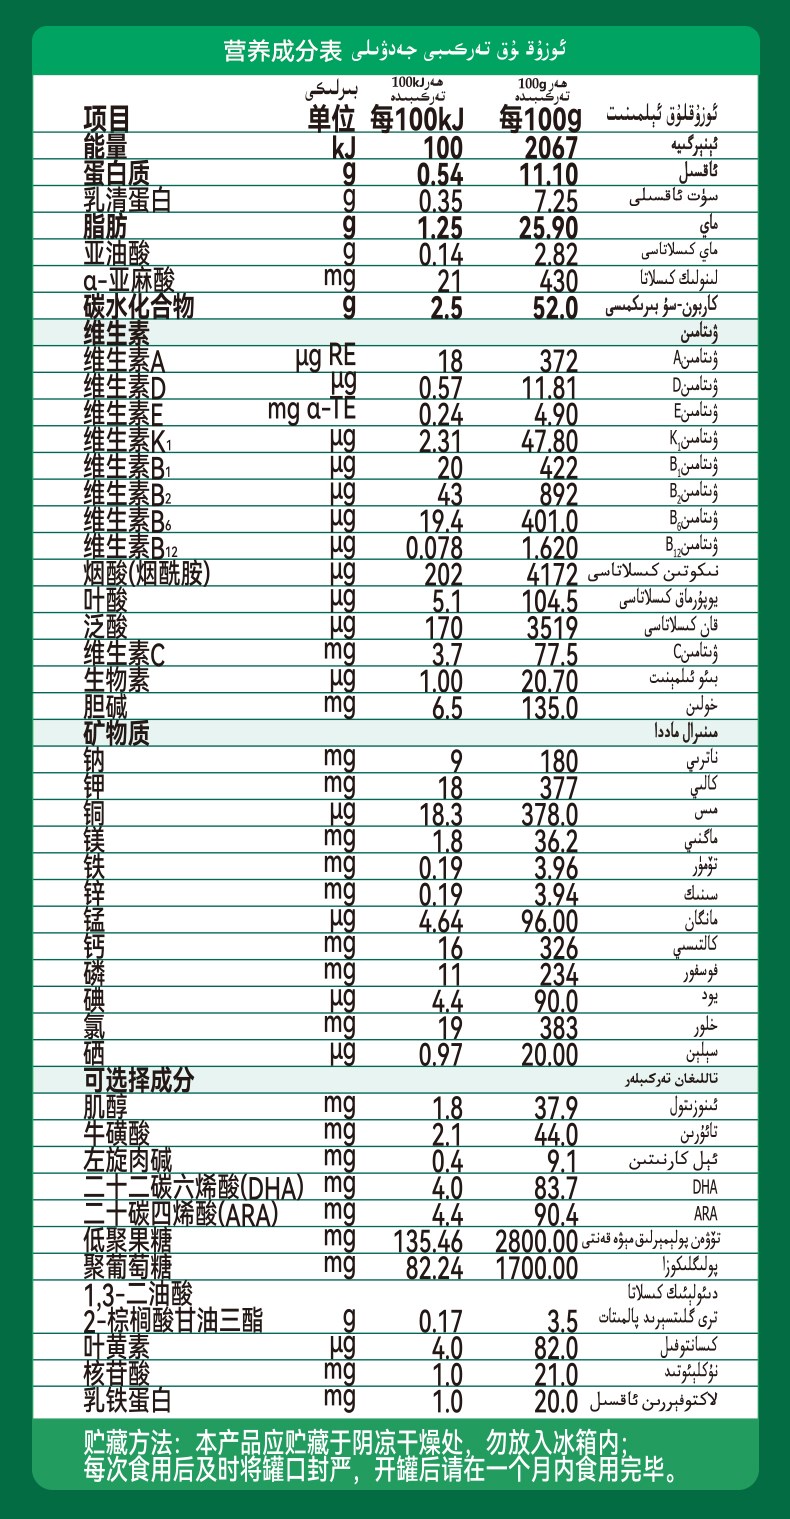 营养成分表 ئوزۇقلۇق تەركىبى جەدۋىلى
项目 单位 بىرلىكى 每100kJ ھەر100kJ تەركىبىدە 每100g ھەر100g تەركىبىدە ئوزۇقلۇق ئېلمىنىت
能量 kJ 100 2067 ئېنېرگىيە
蛋白质 g 0.54 11.10 ئاقسىل
乳清蛋白 g 0.35 7.25 سۈت ئاقسىلى
脂肪 g 1.25 25.90 ماي
亚油酸 g 0.14 2.82 ماي كىسلاتاسى
α-亚麻酸 mg 21 430 لىنولىك كىسلاتا
碳水化合物 g 2.5 52.0 كاربون-سۇ بىرىكمىسى
维生素 ۋىتامىن
维生素A μg RE 18 372 ۋىتامىنA
维生素D μg 0.57 11.81 ۋىتامىنD
维生素E mg α-TE 0.24 4.90 ۋىتامىنE
维生素K₁ μg 2.31 47.80 ۋىتامىنK₁
维生素B₁ μg 20 422 ۋىتامىنB₁
维生素B₂ μg 43 892 ۋىتامىنB₂
维生素B₆ μg 19.4 401.0 ۋىتامىنB₆
维生素B₁₂ μg 0.078 1.620 ۋىتامىنB₁₂
烟酸(烟酰胺) μg 202 4172 نىكوتىن كىسلاتاسى
叶酸 μg 5.1 104.5 يوپۇرماق كىسلاتاسى
泛酸 μg 170 3519 قان كىسلاتاسى
维生素C mg 3.7 77.5 ۋىتامىنC
生物素 μg 1.00 20.70 بىئو ئىلمېنىت
胆碱 mg 6.5 135.0 خولىن
矿物质 مىنىرال ماددا
钠 mg 9 180 ناترىي
钾 mg 18 377 كالىي
铜 μg 18.3 378.0 مىس
镁 mg 1.8 36.2 ماگنىي
铁 mg 0.19 3.96 تۆمۈر
锌 mg 0.19 3.94 سىنىك
锰 μg 4.64 96.00 مانگان
钙 mg 16 326 كالتىسىي
磷 mg 11 234 فوسفور
碘 μg 4.4 90.0 يود
氯 mg 19 383 خلور
硒 μg 0.97 20.00 سېلېن
可选择成分 تاللىغان تەركىبلەر
肌醇 mg 1.8 37.9 ئىنوزىتول
牛磺酸 mg 2.1 44.0 تائۇرىن
左旋肉碱 mg 0.4 9.1 ئېل كارنىتىن
二十二碳六烯酸(DHA) mg 4.0 83.7 DHA
二十碳四烯酸(ARA) mg 4.4 90.4 ARA
低聚果糖 mg 135.46 2800.00 تۆۋەن پولىمېرلىق مېۋە قەنتى
聚葡萄糖 mg 82.24 1700.00 پولىگلىكوزا
1,3-二油酸 دىئولېئىك كىسلاتا
2-棕榈酸甘油三酯 g 0.17 3.5 ترى گلىتسېرىد پالمىتات
叶黄素 μg 4.0 82.0 كسانتوفىل
核苷酸 mg 1.0 21.0 نۇكلېئوتىد
乳铁蛋白 mg 1.0 20.0 لاكتوفېررىن ئاقسىل
贮藏方法：本产品应贮藏于阴凉干燥处，勿放入冰箱内；
每次食用后及时将罐口封严，开罐后请在一个月内食用完毕。